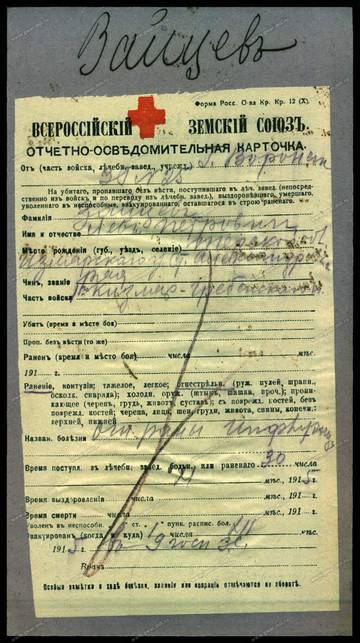 Зайцевъ
Форма Росс. О-ва Кр. Кр. 12 (X).
ВСЕРОССІЙСКІЙ ЗЕМСКІЙ СОЮЗЪ.
ОТЧЕТНО-ОСВѢДОМИТЕЛЬНАЯ КАРТОЧКА.
Отъ (часть войска, лѣчебн. завед., учрежд.) г. Воронеж
На убитаго, пропавшаго безъ вѣсти, поступившаго въ лѣч. завед. (непосред-
ственно изъ войскъ, и по переводу изъ лѣчебн. завед.), выздоровѣвшаго, умершаго,
уволеннаго въ неспособные, эвакуированнаго, оставшагося въ строю раненаго.
Фамилія
Имя и отчество Петровичъ
Мѣсто рожденія (губ., уѣздъ, селеніе) Терской о
Чинъ, званіе
Часть войска Кизляр-Гребенской
Убитъ (время и мѣсто боя)
Проп. безъ вѣсти (то же)
Раненъ (время и мѣсто боя) числа мѣс.
191 г.
Раненіе, контузія; тяжелое, легкое; огнестрѣльн. (руж. пулей, шрапн.,
осколк. снаряда); холодн. оруж. (штыкъ, шашка, проч.); прони-
кающее (черепъ, грудь, животъ, суставъ); съ поврежд. костей, безъ
поврежд. костей; черепа, лица, шеи, груди, живота, спины, конечн.:
верхней, нижней
Назван. болѣзни
Время поступл. въ лѣчебн. завед. больн. или раненаго 30 числа
XI мѣс., 1915 г.
Время выздоровленія числа мѣс., 191 г.
Время смерти числа мѣс., 191 г.
Уволенъ въ неспособн. ст. пунк. распис. бол.
Эвакуированъ (когда и куда)
1915 г. въ 9 госп ЗС
Врачъ
Особыя замѣтки о ходѣ болѣзни, раненіи или операціи отмѣчаются на оборотѣ.